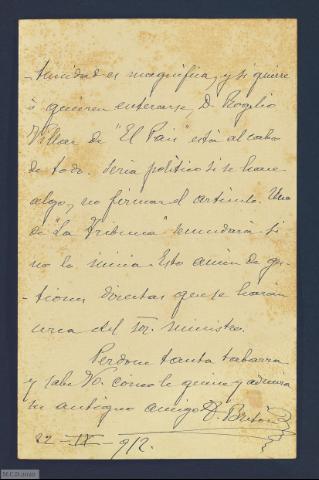 -tunidad es magnifica, y si quiere
ó quieren enterarse, D. Rogelio
Villar de "El Pais" está al cabo
de todo. Seria politico si se hace
algo, no firmar el articulo. Uno
de "La Tribuna" secundará si
no lo inicia. Esto amen de ges-
-tiones directas que se harán
cerca del Sor. Ministro.
Perdone tanta tabarra
y sabe Vd. como le quiere y admira
su antiguo amigo T. Bretón
22-IX-912.
M.C.D. 2022